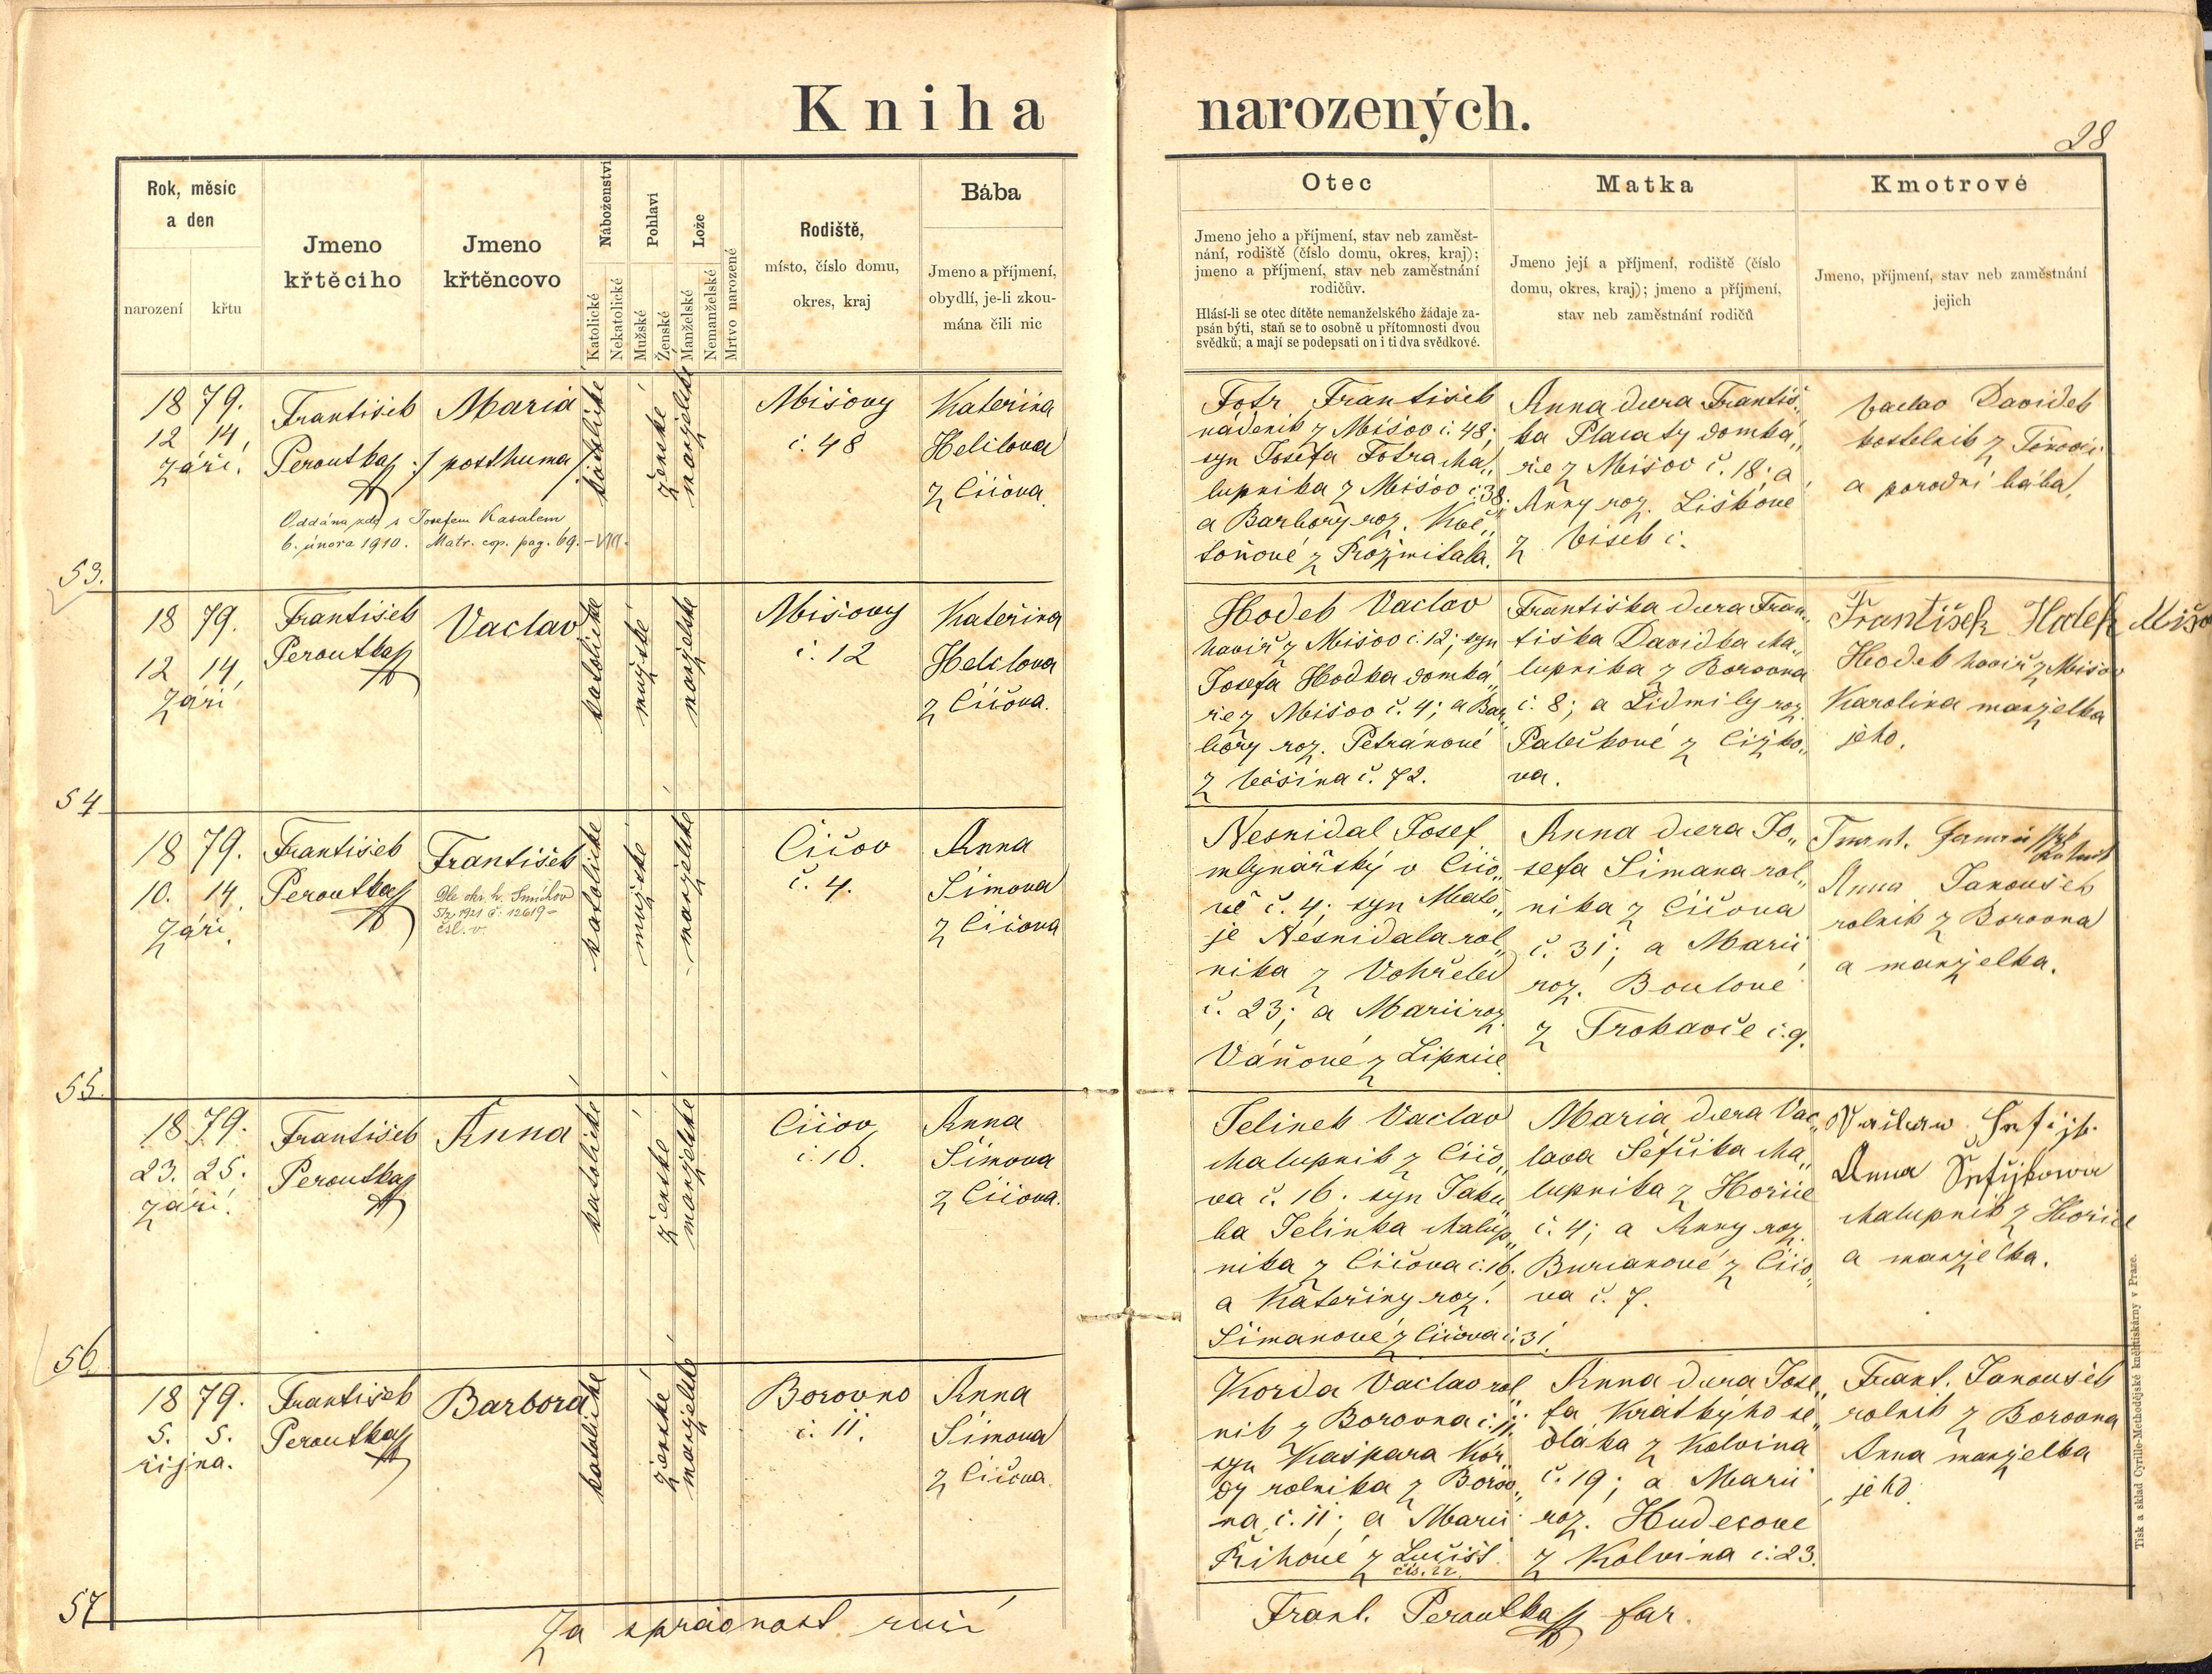 Kniha narozených.
28
Rok, měsíc
a den
narození
křtu
Jmeno
křtěcího
Jmeno
křtěncovo
Náboženství
Katolické
Nekatolické
Pohlaví
Mužské
Ženské
Lože
Manželské
Nemanželské
Mrtvo narozené
Rodiště,
místo, číslo domu,
okres, kraj
Bába
Jmeno a příjmení,
obydlí, je-li zkou-
mána čili nic
Otec
Jmeno jeho a příjmení, stav neb zaměst-
nání, rodiště (číslo domu, okres, kraj);
jmeno a příjmení, stav neb zaměstnání
rodičův.
Hlásí-li se otec dítěte nemanželského žádaje za-
psán býti, staň se to osobně u přítomnosti dvou
svědků; a mají se podepsati on i ti dva svědkové.
Matka
Jmeno její a příjmení, rodiště (číslo
domu, okres, kraj); jmeno a příjmení,
stav neb zaměstnání rodičů
Kmotrové
Jmeno, příjmení, stav neb zaměstnání
jejich
53.
1879.
12 14.
září.
František
Peroutka
Maria
/: posthuma :/
Oddána zde s Josefem Kasalem
6. února 1910. Matr. cop. pag. 69. - VIII.
katolické
ženské
manželské
Mišovy
č. 48
Kateřina
Helclova
z Číčova
Fotr František
nádeník z Mišov č. 48;
syn Josefa Fotra cha„
lupníka z Mišov č. 38.
a Barbory roz. Koč„
toňové z Rožmitála.
Anna dcera Františ„
ka Placaty domká„
ře z Mišov č. 18; a
Anny roz. Liškové
z Vísek č.
Václav Davídek
kostelník z
a porodní bába.
54
1879.
12 14
září
František
Peroutka
Vaclav
katolické
mužské
manželské
Mišovy
č. 12
Kateřina
Helclova
z Číčova.
Hodek Vaclav
havíř z Mišov č. 12; syn
Josefa Hodka domká„
ře z Mišov č. 4; a Bar„
bory roz. Petránové
z Věšína č. 72.
Františka dcera Fran„
tiška Davídka cha„
lupníka z Borovna
č. 8; a Lidmily roz.
Palečkové z Čížko„
va.
František Hodek Mišo
Hodek havíř z Mišov
Karolina manželka
jeho.
55.
1879.
10. 14.
září.
František
Peroutka
František
Dle okr. h. Smíchov
5/2 1921 č. 12619 -
čsl. v.
katolické
mužské
manželské
Číčov
č. 4.
Anna
Šimova
z Číčova
Nesnídal Josef
mlynářský v Číčo„
vě č. 4; syn Matě„
je Nesnídala rol„
níka z Vohřeled
č. 23; a Marii roz.
Váňové z Lipnice.
Anna dcera Jo„
sefa Šimana rol„
níka z Číčova
č. 31; a Marii
roz. Boulové
z Trokavče č. 9.
Anna Janoušek
rolník z Borovna
a manželka.
56.
1879.
23. 25.
září.
František
Peroutka
Anna
katolické
ženské
manželské
Číčov
č. 16.
Anna
Šimova
z Číčova.
Jelínek Vaclav
chalupník z Číčo„
va č. 16. syn Jaku„
ba Jelínka chalup„
níka z Číčova č. 16.
a Kateřiny roz.
Šimanové z Číčova č. 31.
Maria dcera Vac„
lava Šefčíka cha„
lupníka z Hořice
č. 4; a Anny roz.
Burianové z Číčo„
va č. 7.
Anna
chalupník z Hořice
a manželka.
57
1879.
5. 5.
října.
František
Peroutka
Barbora
katolické
ženské
manželské
Borovno
č. 11.
Anna
Šimova
z Číčova
Korda Vaclav rol„
ník z Borovna č. 11.
syn Kašpara Kor„
dy rolníka z Borov„
na č. 11; a Marii
Říhové z Lučišt
čís. 22.
Anna dcera Jose„
fa Krátkýho se„
dláka z Kolvína
č. 19; a Marii
roz. Hudecove
z Kolvína č. 23.
Frant. Janoušek
rolník z Borovna
Anna manželka
jeho.
Za správnost ručí Frant. Peroutka far.
Tisk a sklad Cyrillo-Methodějské knihtiskárny v Praze.